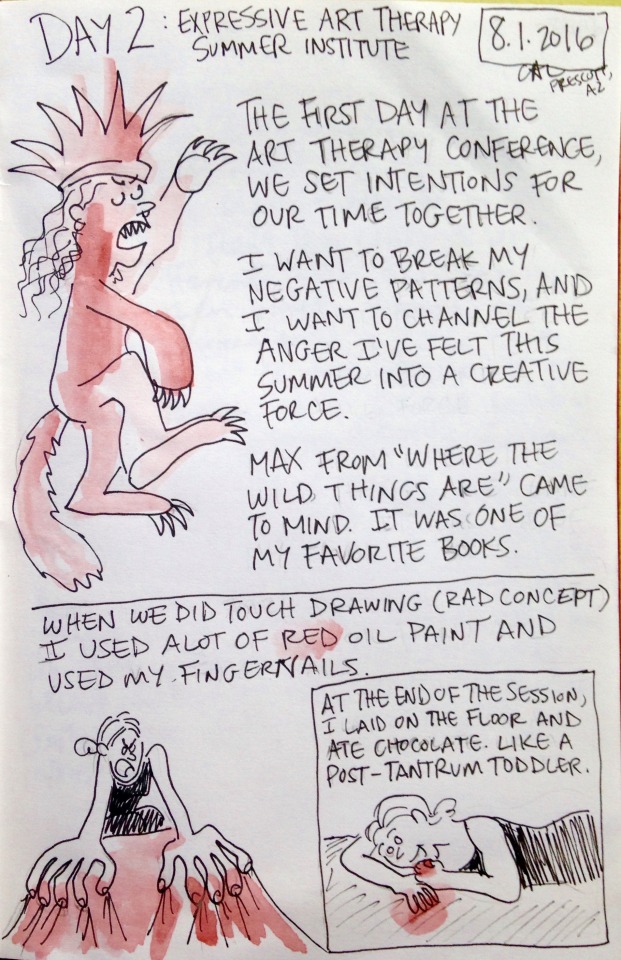 DAY 2 : EXPRESSIVE ART THERAPY
SUMMER INSTITUTE
8.1.2016
PRESCOTT,
AZ
THE FIRST DAY AT THE
ART THERAPY CONFERENCE,
WE SET INTENTIONS FOR
OUR TIME TOGETHER.
I WANT TO BREAK MY
NEGATIVE PATTERNS, AND
I WANT TO CHANNEL THE
ANGER I'VE FELT THIS
SUMMER INTO A CREATIVE
FORCE.
MAX FROM "WHERE THE
WILD THINGS ARE" CAME
TO MIND. IT WAS ONE OF
MY FAVORITE BOOKS.
WHEN WE DID TOUCH DRAWING (RAD CONCEPT)
I USED ALOT OF RED OIL PAINT AND
USED MY FINGERNAILS.
AT THE END OF THE SESSION,
I LAID ON THE FLOOR AND
ATE CHOCOLATE. LIKE A
POST-TANTRUM TODDLER.